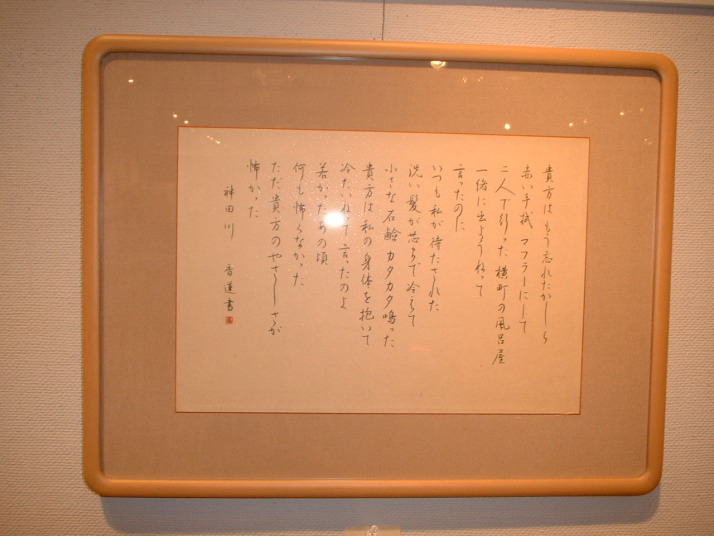 貴方はもう忘れたかしら
赤い手拭 マフラーにして
二人で行った 横町の風呂屋
一緒に出ようねって
言ったのに
いつも私が待たされた
洗い髪が芯まで冷えて
小さな石鹸 カタカタ鳴った
貴方は私の身体を抱いて
冷たいねって 言ったのよ
若かったあの頃
何も怖くなかった
ただ貴方のやさしさが
怖かった
神田川 香蓮書